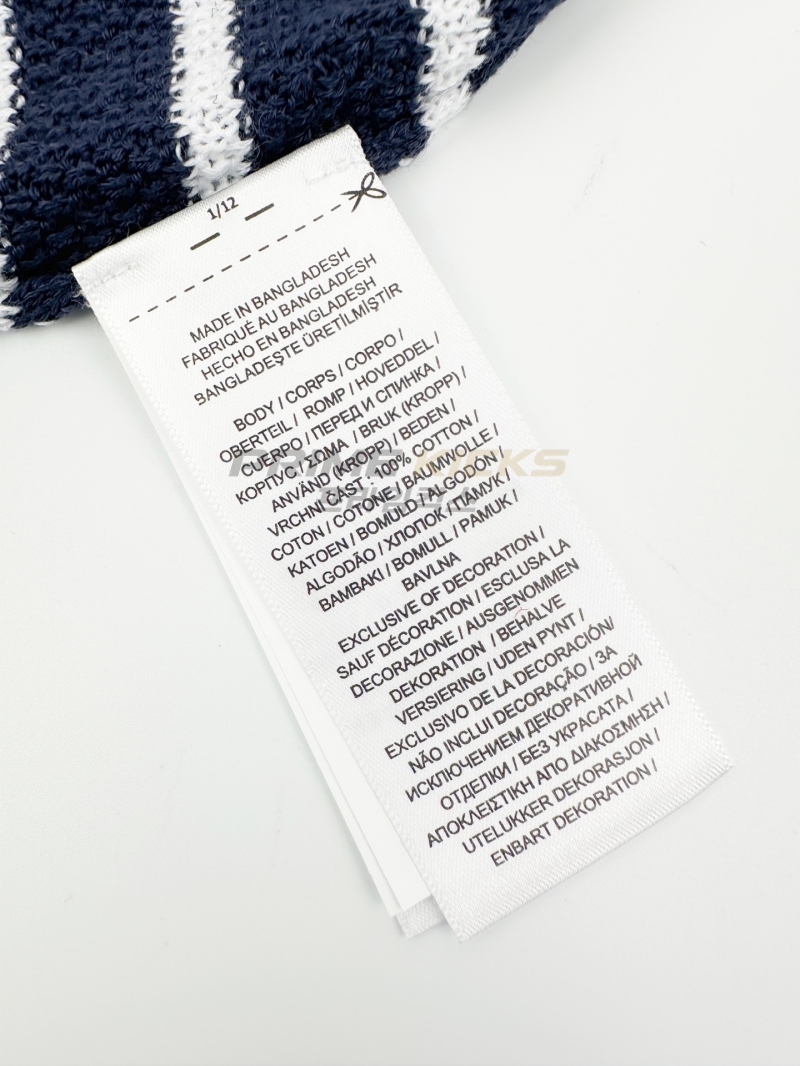 1/12
MADE IN BANGLADESH
FABRIQUÉ AU BANGLADESH
HECHO EN BANGLADESH
BANGLADEŞTE ÜRETİLMİŞTİR
BODY / CORPS / CORPO /
OBERTEIL / ROMP / HOVEDDEL /
CUERPO / ПЕРЕД И СПИНКА /
ΚΟΡΠΥΣ ΤΣΩΜΑ / BRUK (KROPP) /
ANVÄND (KROPP) / BEDEN /
VRCHNI CAST : 100% COTTON /
COTON / COTONE / BAUMWOLLE /
KATOEN / BOMULD / ALGODÓN /
ALGODÃO / ХЛОПОК / ПАМУК /
BAMBAKI / BOMULL / PAMUK /
BAVLNA
EXCLUSIVE OF DECORATION /
SAUF DÉCORATION / ESCLUSA LA
DECORAZIONE / AUSGENOMMEN
DEKORATION / BEHALVE
VERSIERING / UDEN PYNT /
EXCLUSIVO DE LA DECORACIÓN/
NÃO INCLUI DECORAÇÃO / ЗА
ИСКЛЮЧЕНИЕМ ДЕКОРАТИВНОЙ
ОТДЕЛКИ / БЕЗ УКРАСАТА /
ΑΠΟΚΛΕΙΣΤΙΚΗ ΑΠΟ ΔΙΑΚΟΣΜΗΣΗ /
UTELUKKER DEKORASJON /
ENBART DEKORATION /
PRIME KICKS